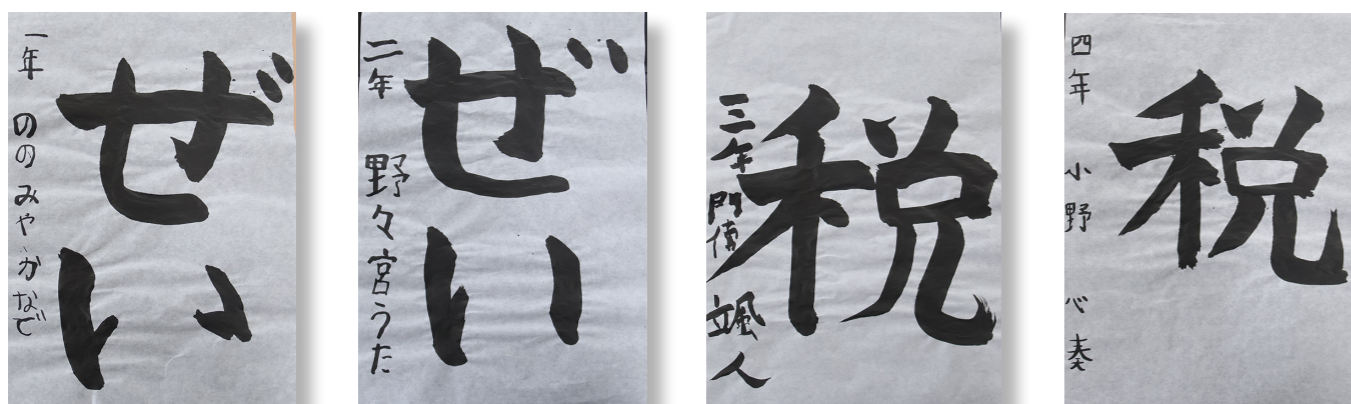 ぜい
一年 ののみや かなで
ぜい
二年 野々宮うた
税
三年 門傳 颯人
税
四年 小野 心奏